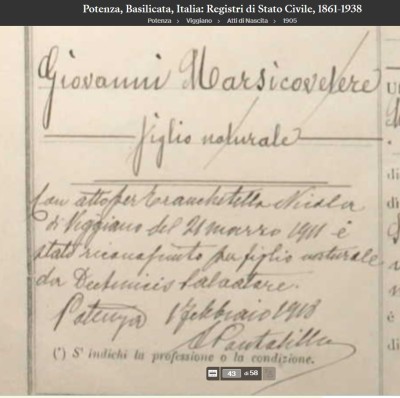 Potenza, Basilicata, Italia: Registri di Stato Civile, 1861-1938
Potenza › Viggiano › Atti di Nascita › 1905
Giovanni Marsicovetere
figlio naturale
Con atto per Nicola
di Viggiano del 21 marzo 1911 è
stato riconosciuto per figlio naturale
da Salvatore.
Potenza 1 febbraio 1918
(*) S' indichi la professione o la condizione.
43 di 58